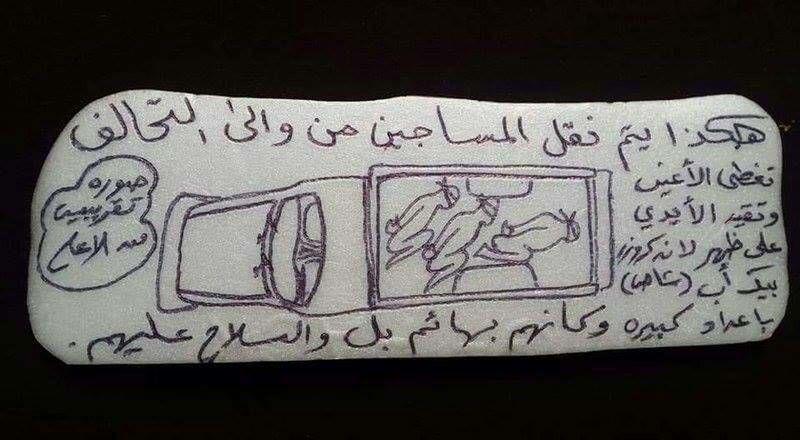 هكذا يتم نقل المساجين من والى التحالف
تغطى الأعين
وتقيد الأيدي
على ظهر لاندكروزر
بيك أب (شاص)
باعداد كبيره وكأنهم بهائم بل والسلاح عليهم.
صوره
تقريبيه
من الاعلى